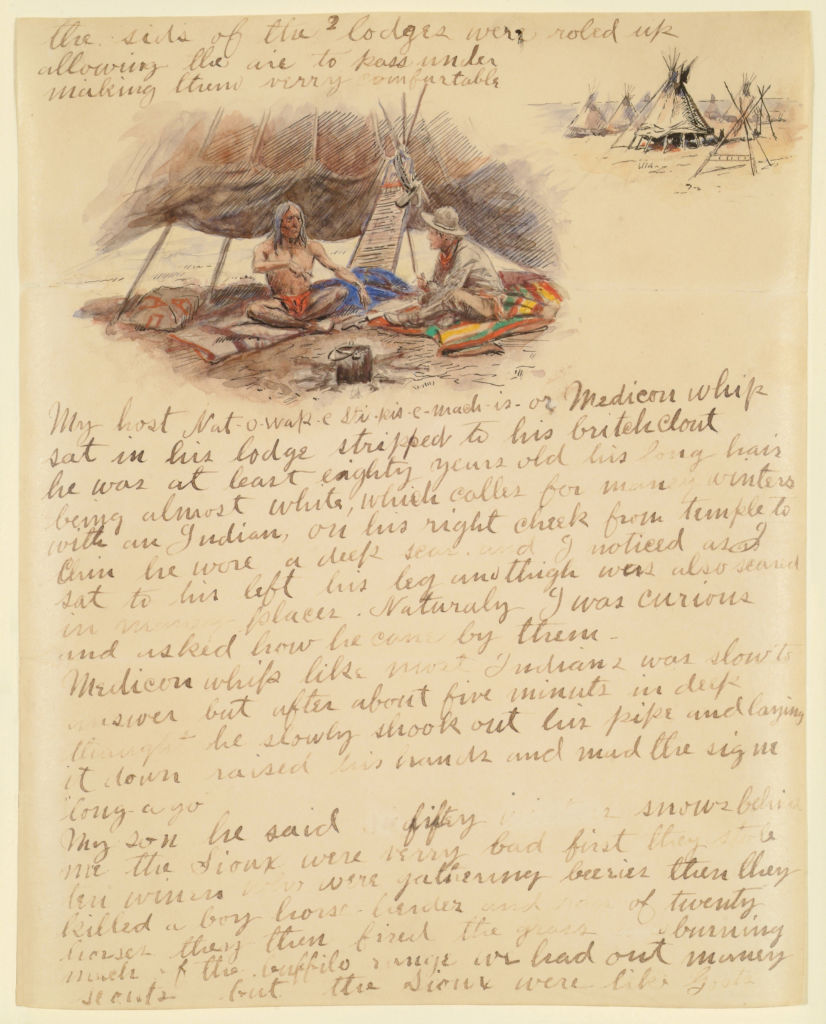 the sids of the 2 lodges were roled up
allowing the air to pass under
making them verry comfortable
My host Nat-o-wap-e Sti-kis-e-mach-is- or Medicon whip
sat in his lodge stripped to his britchclout
he was at least eaghty years old his long hair
being almost white, which calles for maney winters
with an Indian, on his right cheek from temple to
chin he wore a deep scar and I noticed as I
sat to his left his leg and thigh was also scared
in maney places. Naturaly I was curious
and asked how he came by them-
Medicon whip like most Indians was slow to
answer but after about five minuts in deep
thought he slowly shook out his pipe and laying
it down raised his hands and mad the sign
long-a-go
My son he said fifty snows behind
me the Sioux were verry bad first they stole
ten wimen who were gathering beeries then they
killed a boy horse-herder and of twenty
horses they then fired the grass burning
much of the buffilo range we had out maney
scouts but the Sioux were like